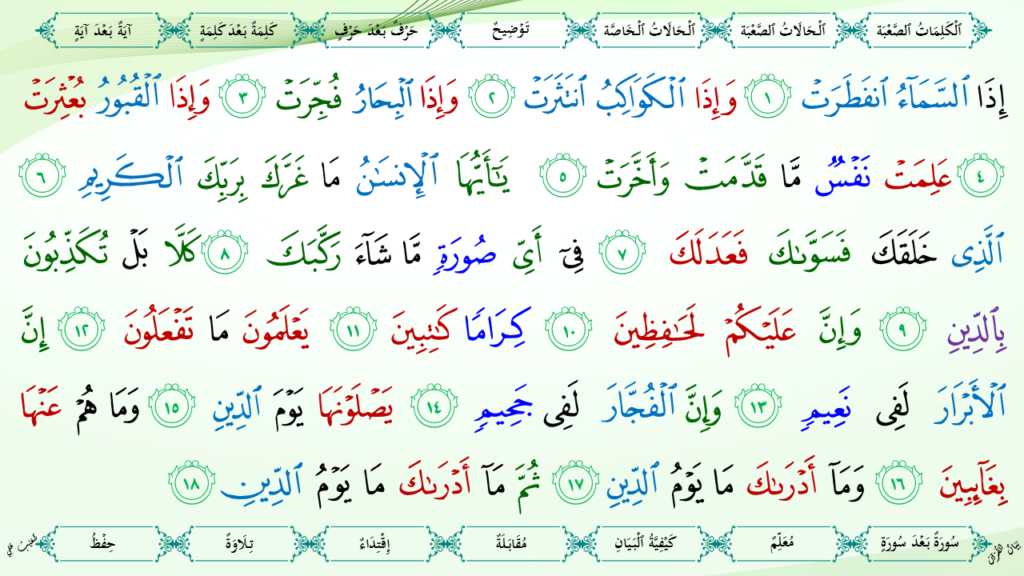 اَلْكَلِمَاتُ الصَّعْبَة اَلْحَالَاتُ الصَّعْبَة اَلْحَالَاتُ الْخَاصَّة تَوْضِيحٌ حَرْفٌ بَعْدَ حَرْفٍ كَلِمَةٌ بَعْدَ كَلِمَةٍ آيَةٌ بَعْدَ آيَةٍ
إِذَا ٱلسَّمَآءُ ٱنفَطَرَتْ ١ وَإِذَا ٱلْكَوَاكِبُ ٱنتَثَرَتْ ٢ وَإِذَا ٱلْبِحَارُ فُجِّرَتْ ٣ وَإِذَا ٱلْقُبُورُ بُعْثِرَتْ
٤ عَلِمَتْ نَفْسٌ مَّا قَدَّمَتْ وَأَخَّرَتْ ٥ يَـٰٓأَيُّهَا ٱلْإِنسَـٰنُ مَا غَرَّكَ بِرَبِّكَ ٱلْكَرِيمِ ٦
ٱلَّذِى خَلَقَكَ فَسَوَّىٰكَ فَعَدَلَكَ ٧ فِىٓ أَىِّ صُورَةٍ مَّا شَآءَ رَكَّبَكَ ٨ كَلَّا بَلْ تُكَذِّبُونَ
بِٱلدِّينِ ٩ وَإِنَّ عَلَيْكُمْ لَحَـٰفِظِينَ ١٠ كِرَامًا كَـٰتِبِينَ ١١ يَعْلَمُونَ مَا تَفْعَلُونَ ١٢ إِنَّ
ٱلْأَبْرَارَ لَفِى نَعِيمٍ ١٣ وَإِنَّ ٱلْفُجَّارَ لَفِى جَحِيمٍ ١٤ يَصْلَوْنَهَا يَوْمَ ٱلدِّينِ ١٥ وَمَا هُمْ عَنْهَا
بِغَآئِبِينَ ١٦ وَمَآ أَدْرَىٰكَ مَا يَوْمُ ٱلدِّينِ ١٧ ثُمَّ مَآ أَدْرَىٰكَ مَا يَوْمُ ٱلدِّينِ ١٨
سُورَةٌ بَعْدَ سُورَةٍ مُعَلِّمٌ كَيْفِيَّةُ الْبَيَانِ مُقَابَلَةٌ إِقْتِدَاءٌ تِلَاوَةٌ حِفْظٌ
بَيَانُ الْقُرْآن